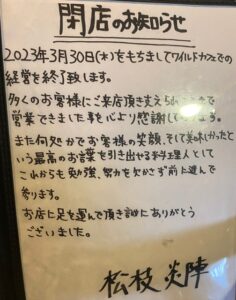 閉店のお知らせ
2023年3月30日(木)をもちましてワイルドカフェでの
経営を終了致します。
多くのお客様にご来店頂き支えられ
営業できました事心より感謝しています。
また何処かでお客様の笑顔、そして美味しかったと
いう最高のお言葉を引き出せるお料理人として
これからも勉強、努力を欠かさず前に進んで
参ります。
お店に足を運んで頂き誠にありがとう
ございました。
松枝 炎陣